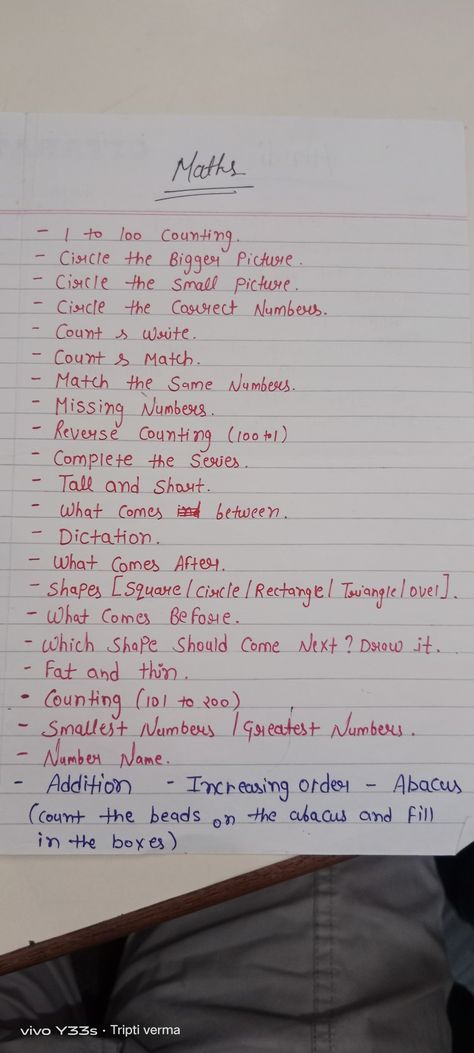 Maths
- 1 to 100 Counting.
- Circle the Bigger Picture.
- Circle the Small Picture.
- Circle the Correct Numbers.
- Count & Write.
- Count & Match.
- Match the Same Numbers.
- Missing Numbers.
- Reverse Counting (100 to 1)
- Complete the Series.
- Tall and Short.
- What Comes between.
- Dictation.
- What Comes After.
- Shapes [Square/Circle/Rectangle/Triangle/ovel].
- What Comes Before.
- Which Shape Should Come Next? Draw it.
- Fat and thin.
- Counting (101 to 200)
- Smallest Numbers / Greatest Numbers.
- Number Name.
- Addition - Increasing order - Abacus
(Count the beads on the abacus and fill
in the boxes)
vivo Y33s · Tripti verma